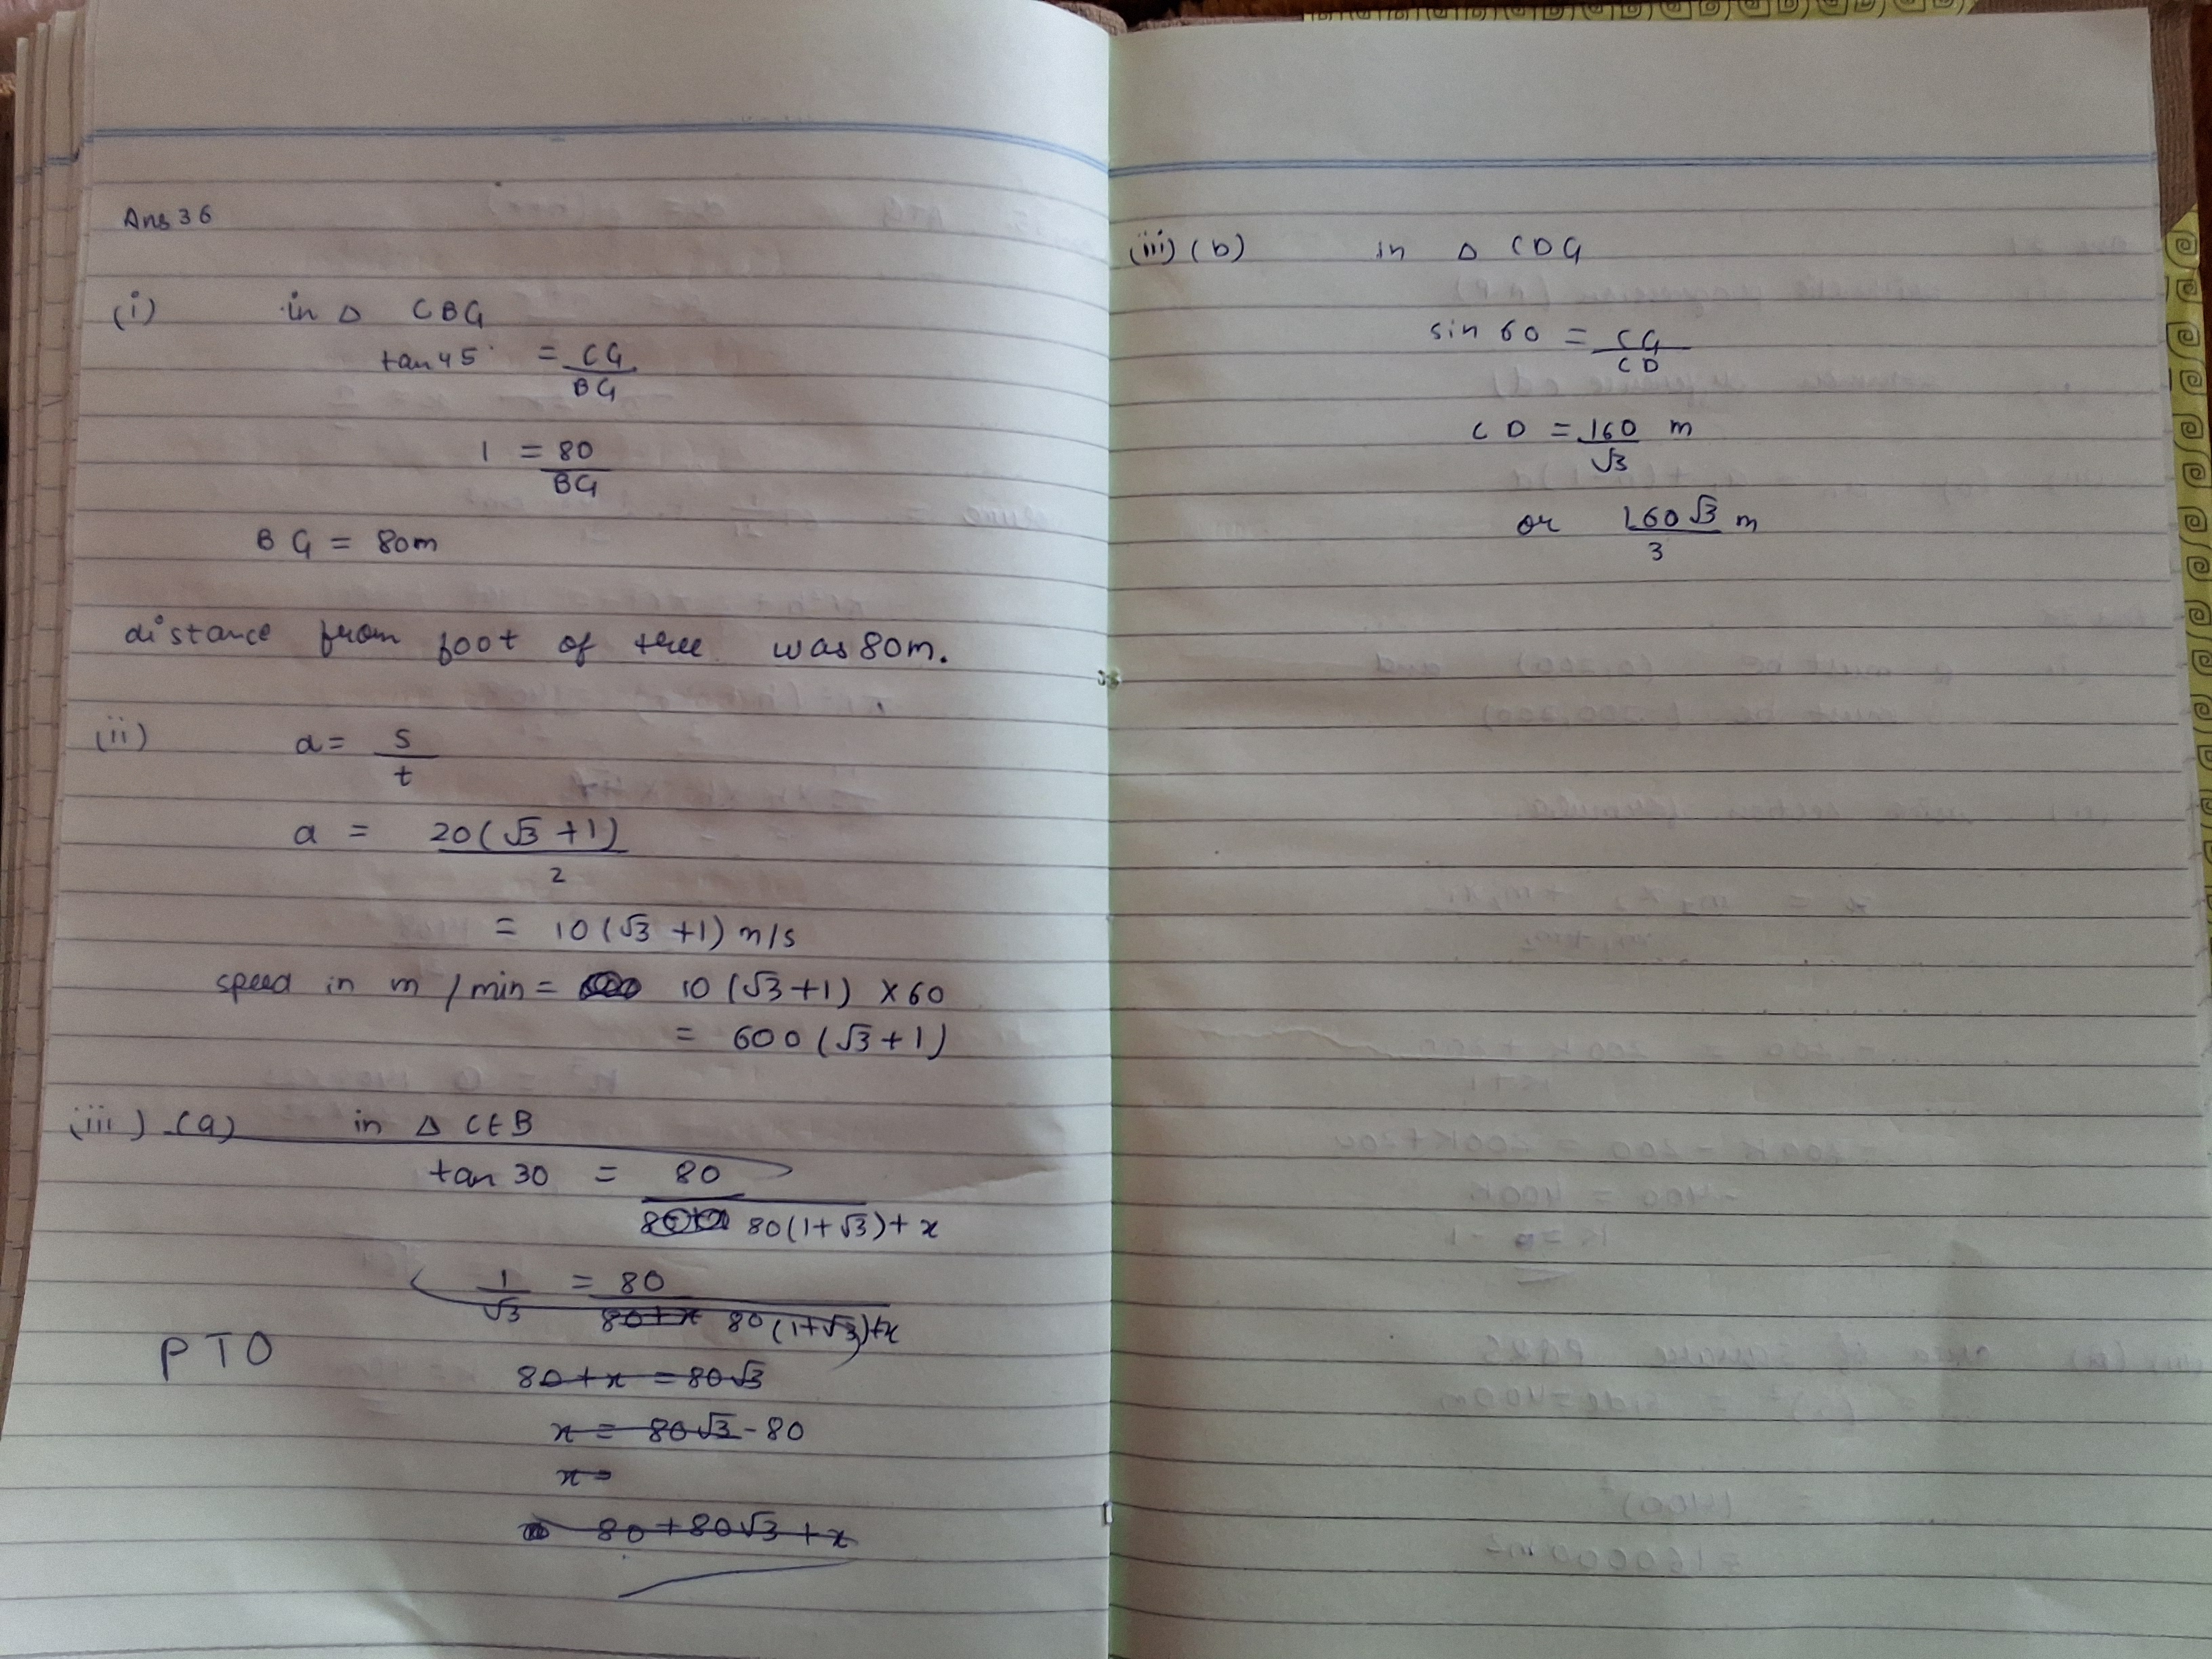 Ans 36
(i) in Δ CBG
tan 45° = CG / BG
1 = 80 / BG
BG = 80m
distance from foot of tree was 80m.
(ii) d = s / t
d = 20(√3 + 1) / 2
= 10(√3 + 1) m/s
speed in m / min = 10(√3+1) × 60
= 600(√3+1)
(iii) (a) in Δ CEB
tan 30 = 80 / 80(1+√3)+x
1 / √3 = 80 / 80+x 80(1+√3)+x
PTO
80+x = 80√3
x = 80√3 - 80
x =
80+80√3+x
(iii) (b) in Δ CDG
sin 60 = CG / CD
CD = 160 / √3 m
or 160√3 / 3 m